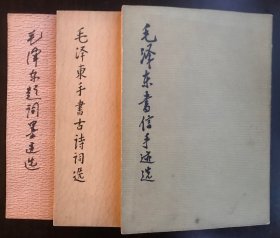 毛泽东题词墨迹选
毛泽東手書古詩詞选
毛泽东书信手迹选